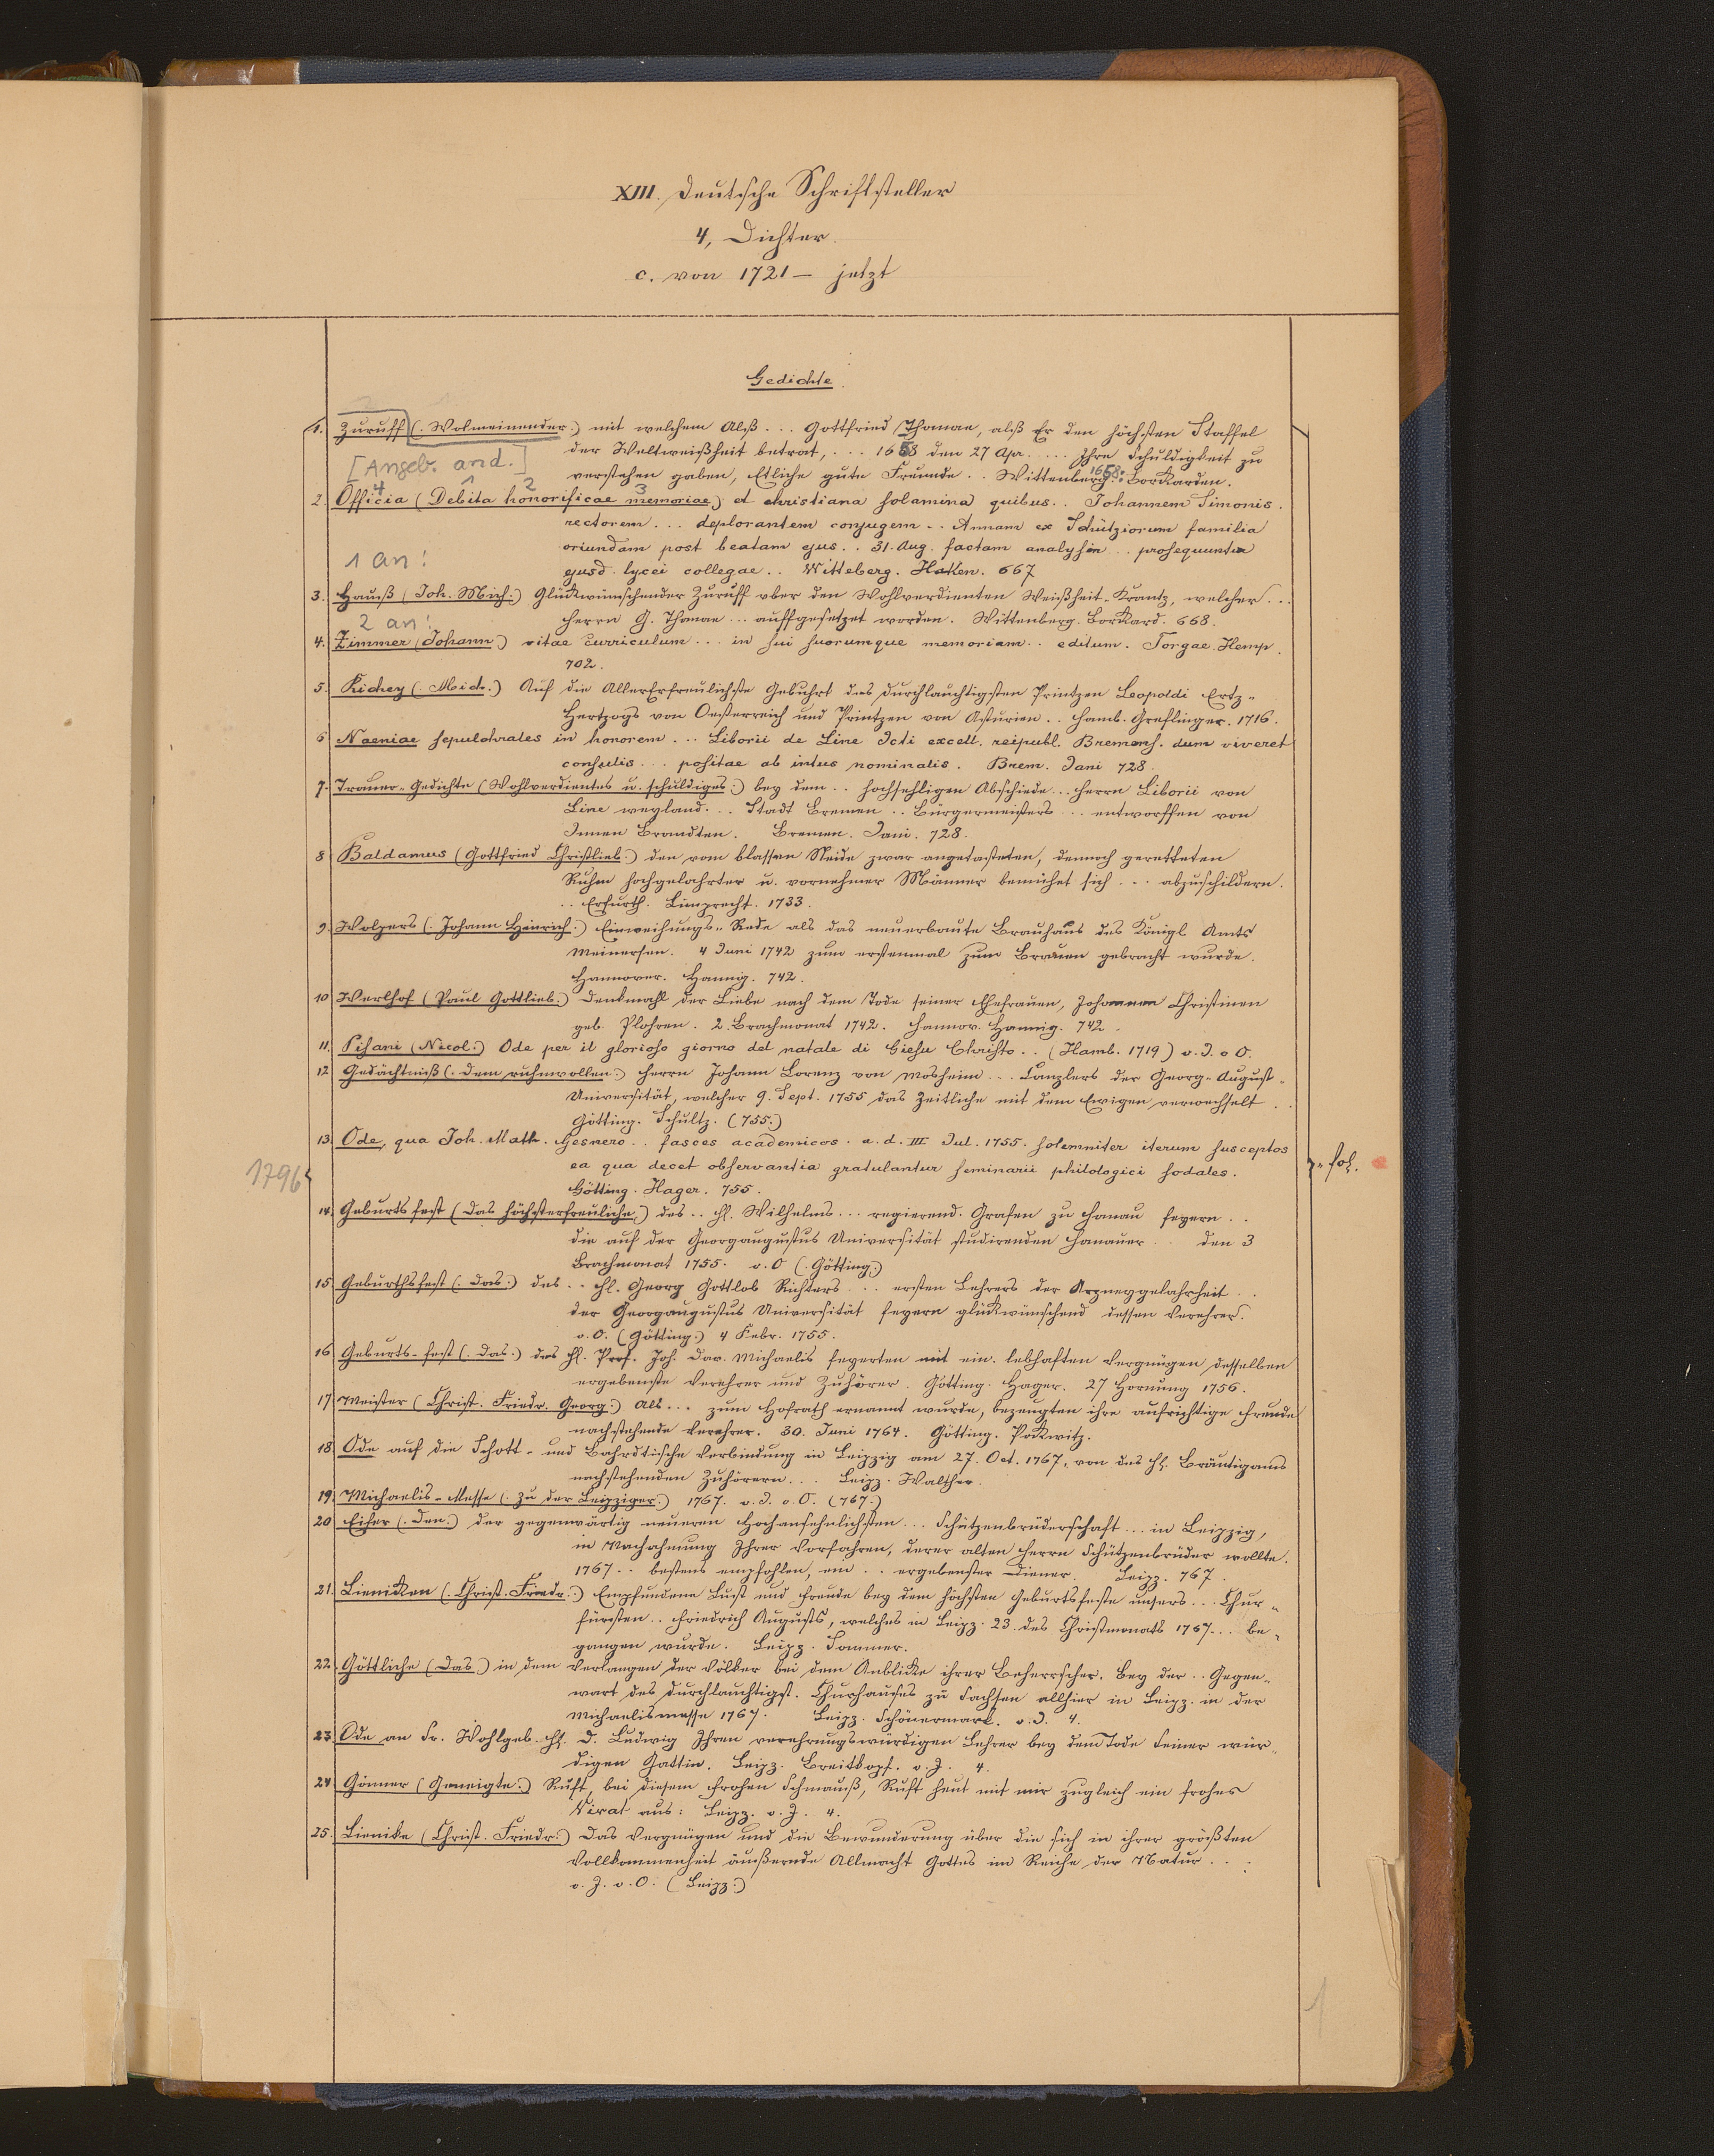 XIII. Deutsche Schriftsteller
4, Dichter.
c. von 1721 – jetzt
Gedichte.
1. Zuruff (. Wolmeinender.) mit welchem Alß ... Gottfried Thomae, alß Er den höchsten Staffel
der Weltweißheit betrat, ... 1658 den 27 Apr. .... Ihre Schuldigkeit zu
[Angeb. and.]
verstehen gaben, Etliche gute Freunde .. Wittenberg 1658: Borkarden.
4 1 2 3
2. Officia (Debita honorificae memoriae) et christiana solamina quibus .. Johannem Simonis.
rectorem ... deplorantem conjugem .. Annam ex Schütziorum familia
1 an!
oriundam post beatam ejus .. 31. Aug. factam analysin .. prosequuntur
ejusd. lycei collegae .. Witteberg. Haken. 667
3. Hauß (Joh. Mich:) Glückwünschender Zuruff uber den Wohlverdienten Weißheit-Krantz, welcher ...
2 an!
Herrn G. Thomae ... auffgesetzet worden. Wittenberg. Borkard. 668.
4. Zimmer (Johann.) vitae curriculum ... in sui suorumque memoriam .. editum. Torgae. Hemp.
702.
5. Richey (. Mich.) Auf die AllerErfreulichste Gebuhrt des durchlauchtigsten Printzen Leopoldi Ertz-
Hertzogs von Oesterreich und Printzen von Asturien .. Hamb. Greflinger. 1716.
6 Naeniae sepulchrales in honorem ... Liborii de Line Icti excell. reipubl. Bremens. dum viveret
consulis ... positae ab intus nominatis. Brem. Jani 728.
7. Trauer-Gedichte (Wohlverdientes u. schuldiges.) bey dem .. hochsehligen Abschiede ... Herrn Liborii von
Line weyland ... Stadt Bremen .. Bürgermeisters ... entworffen von
Innen Benandten. Bremen. Jani. 728.
8 Baldamus (Gottfried Christlieb.) den vom blassen Neide zwar angetasteten, dennoch geretteten
Ruhm hochgelahrter u. vornehmer Männer bemühet sich ... abzuschildern.
.. Erfurth. Limprecht. 1733.
9. Wolpers (. Johann Heinrich.) Einweihungs-Rede als das neuerbaute Brauhaus des Königl Amts
Meinersen. 4 Juni 1742 zum erstenmal zum Brauen gebracht wurde.
Hannover. Hannig. 742.
10 Werlhof (Paul Gottlieb.) Denkmahl der Liebe nach dem Tode seiner Ehefrauen, Johannen Christinen
geb. Plohren. 2. Brachmonat 1742. Hannov. Hannig. 742.
11. Pisani (Nicol:) Ode per il glorioso giorno del natale di Giesu Christo .. (Hamb. 1719) o. J. o O.
12 Gedächtniß (. dem ruhmvollen.) Herrn Johann Lorenz von Mosheim ... Canzlers der Georg-August-
Universität, welcher 9. Sept. 1755 das Zeitliche mit dem Ewigen verwechselt ..
Götting. Schultz. (755.)
13. Ode, qua Joh. Math. Gesnero .. fasces academicos . a. d. III Jul. 1755. solemniter iterum susceptos
ea qua decet observantia gratulantur seminarii philologici sodales.
1796
fol.
Götting. Hager. 755.
14. Geburtsfest (Das höchsterfreuliche.) des .. H. Wilhelms ... regierend. Grafen zu Hanau feyern ..
die auf der Georgaugustus Universität studirenden Hanauer .. den 3
Brachmonat 1755. o. O (. Götting.)
15 Geburthsfest (. Das.) des .. H. Georg Gottlob Richters ... ersten Lehrers der Arzneygelahrheit ..
der Georgaugustus Universität feyern glückwünschend dessen Verehrer.
o. O. (Götting.) 4 Febr. 1755.
16 Geburts-fest (. Das.) des H. Prof. Joh. Dav. Michaelis feyerten mit ein. lebhaften Vergnügen desselben
ergebenste Verehrer und Zuhörer. Götting. Hager. 27 Hornung 1756.
17. Meister (Christ. Friedr. Georg.) Als ... zum Hofrath ernannt wurde, bezeugten ihre aufrichtige Freude
nachstehende Verehrer. 30. Juni 1764. Götting. Pockwitz.
18. Ode auf die Schott- und Bahrdtische Verbindung in Leipzig am 27. Oct. 1767, von des H. Bräutigams
nachstehenden Zuhörern ... Leipz. Walther.
19. Michaelis-Messe (. Zu der Leipziger.) 1767. o. J. o. O. (767.)
20 Eifer (. Den.) der gegenwärtig neueren Hochansehnlichsten ... Schützenbrüderschaft ... in Leipzig,
in Nachahmung Ihrer Vorfahren, derer alten Herrn Schützenbrüder wollte.
1767 .. bestens empfohlen, ein .. ergebenster Diener. Leipz. 767.
21. Lienicken (. Christ. Friedr.) Empfundene Lust und Freude bey dem höchsten Geburtsfeste unsers ... Chur-
fürsten .. Friedrich Augusts, welches in Leipz. 23. des Christmonats 1767 ... be-
gangen wurde. Leipz. Sommer.
22. Göttliche (Das.) in dem Verlangen der Völker bei dem Anblicke ihrer Beherrscher. Bey der .. Gegen-
wart des durchlauchtigst. Churhauses zu Sachsen allhier in Leipz. in der
Michaelismesse 1767. Leipz. Schönermark. o. J. 4.
23. Ode an Sr. Wohlgeb. H. D. Ludwig Ihren verehrungswürdigen Lehrer bey dem Tode seiner wür-
digen Gattin. Leipz. Breitkopf. o. J. 4.
24 Gönner (Geneigte.) Ruft, bei diesem frohen Schmauß, Ruft heut mit mir zugleich ein frohes
Vivat aus: Leipz. o. J. 4.
25. Lienike (Christ. Friedr:) Das Vergnügen und die Bewunderung über die sich in ihrer größten
Vollkommenheit äußernde Allmacht Gottes im Reiche der Natur ...
o. J. o. O. (Leipz.)
1